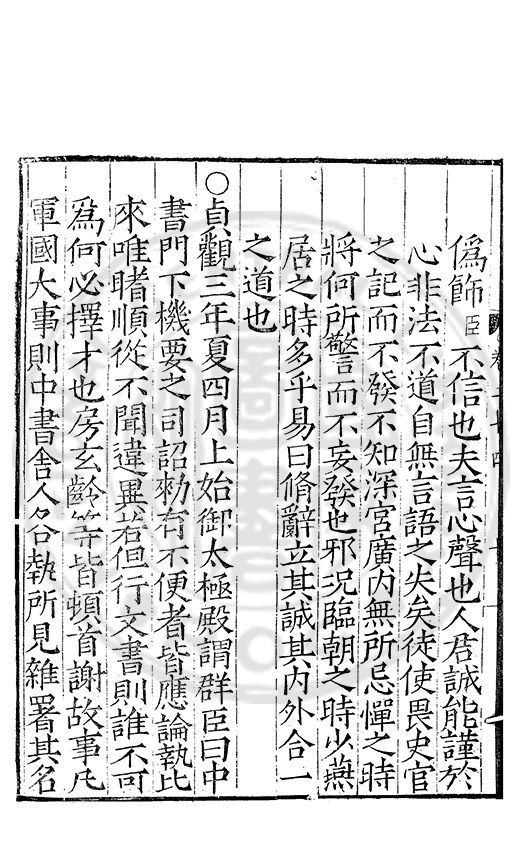 偽飾臣不信也夫言心聲也人君誠能謹於
心非法不道自無言語之失矣徒使畏史官
之記而不發不知深宮廣內無所忌憚之時
將何所警而不妄發也邪況臨朝之時少燕
居之時多乎易曰脩辭立其誠其內外合一
之道也
○貞觀三年夏四月上始御太極殿謂群臣曰中
書門下機要之司詔勑有不便者皆應論執比
來唯睹順從不聞違異若但行文書則誰不可
爲何必擇才也房玄齡等皆頓首謝故事凡
軍國大事則中書舍人各執所見雜署其名